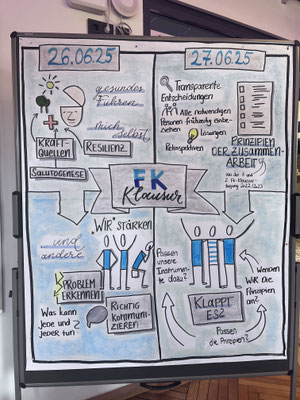 26.06.25
gesundes
Führen
mich selbst
KRAFT-
QUELLEN
RESILIENZ
SALUTOGENESE
27.06.25
Transparente
Entscheidungen
Alle notwendigen
Personen frühzeitig einbe-
ziehen
Lösungen
Retrospektiven
PRINZIPIEN
DER ZUSAMMEN-
ARBEIT
FK
Klausur
...und
andere
"WIR" STÄRKEN
PROBLEM
ERKENNEN
Was kann
jede und
jeder tun
RICHTIG
KOMMUNI-
ZIEREN
Passen
unsere
Instrumen-
te dazu?
KLAPPT
ES?
Wenden
WIR die
Prinzipien
an?
Passen
die Prinzipien?